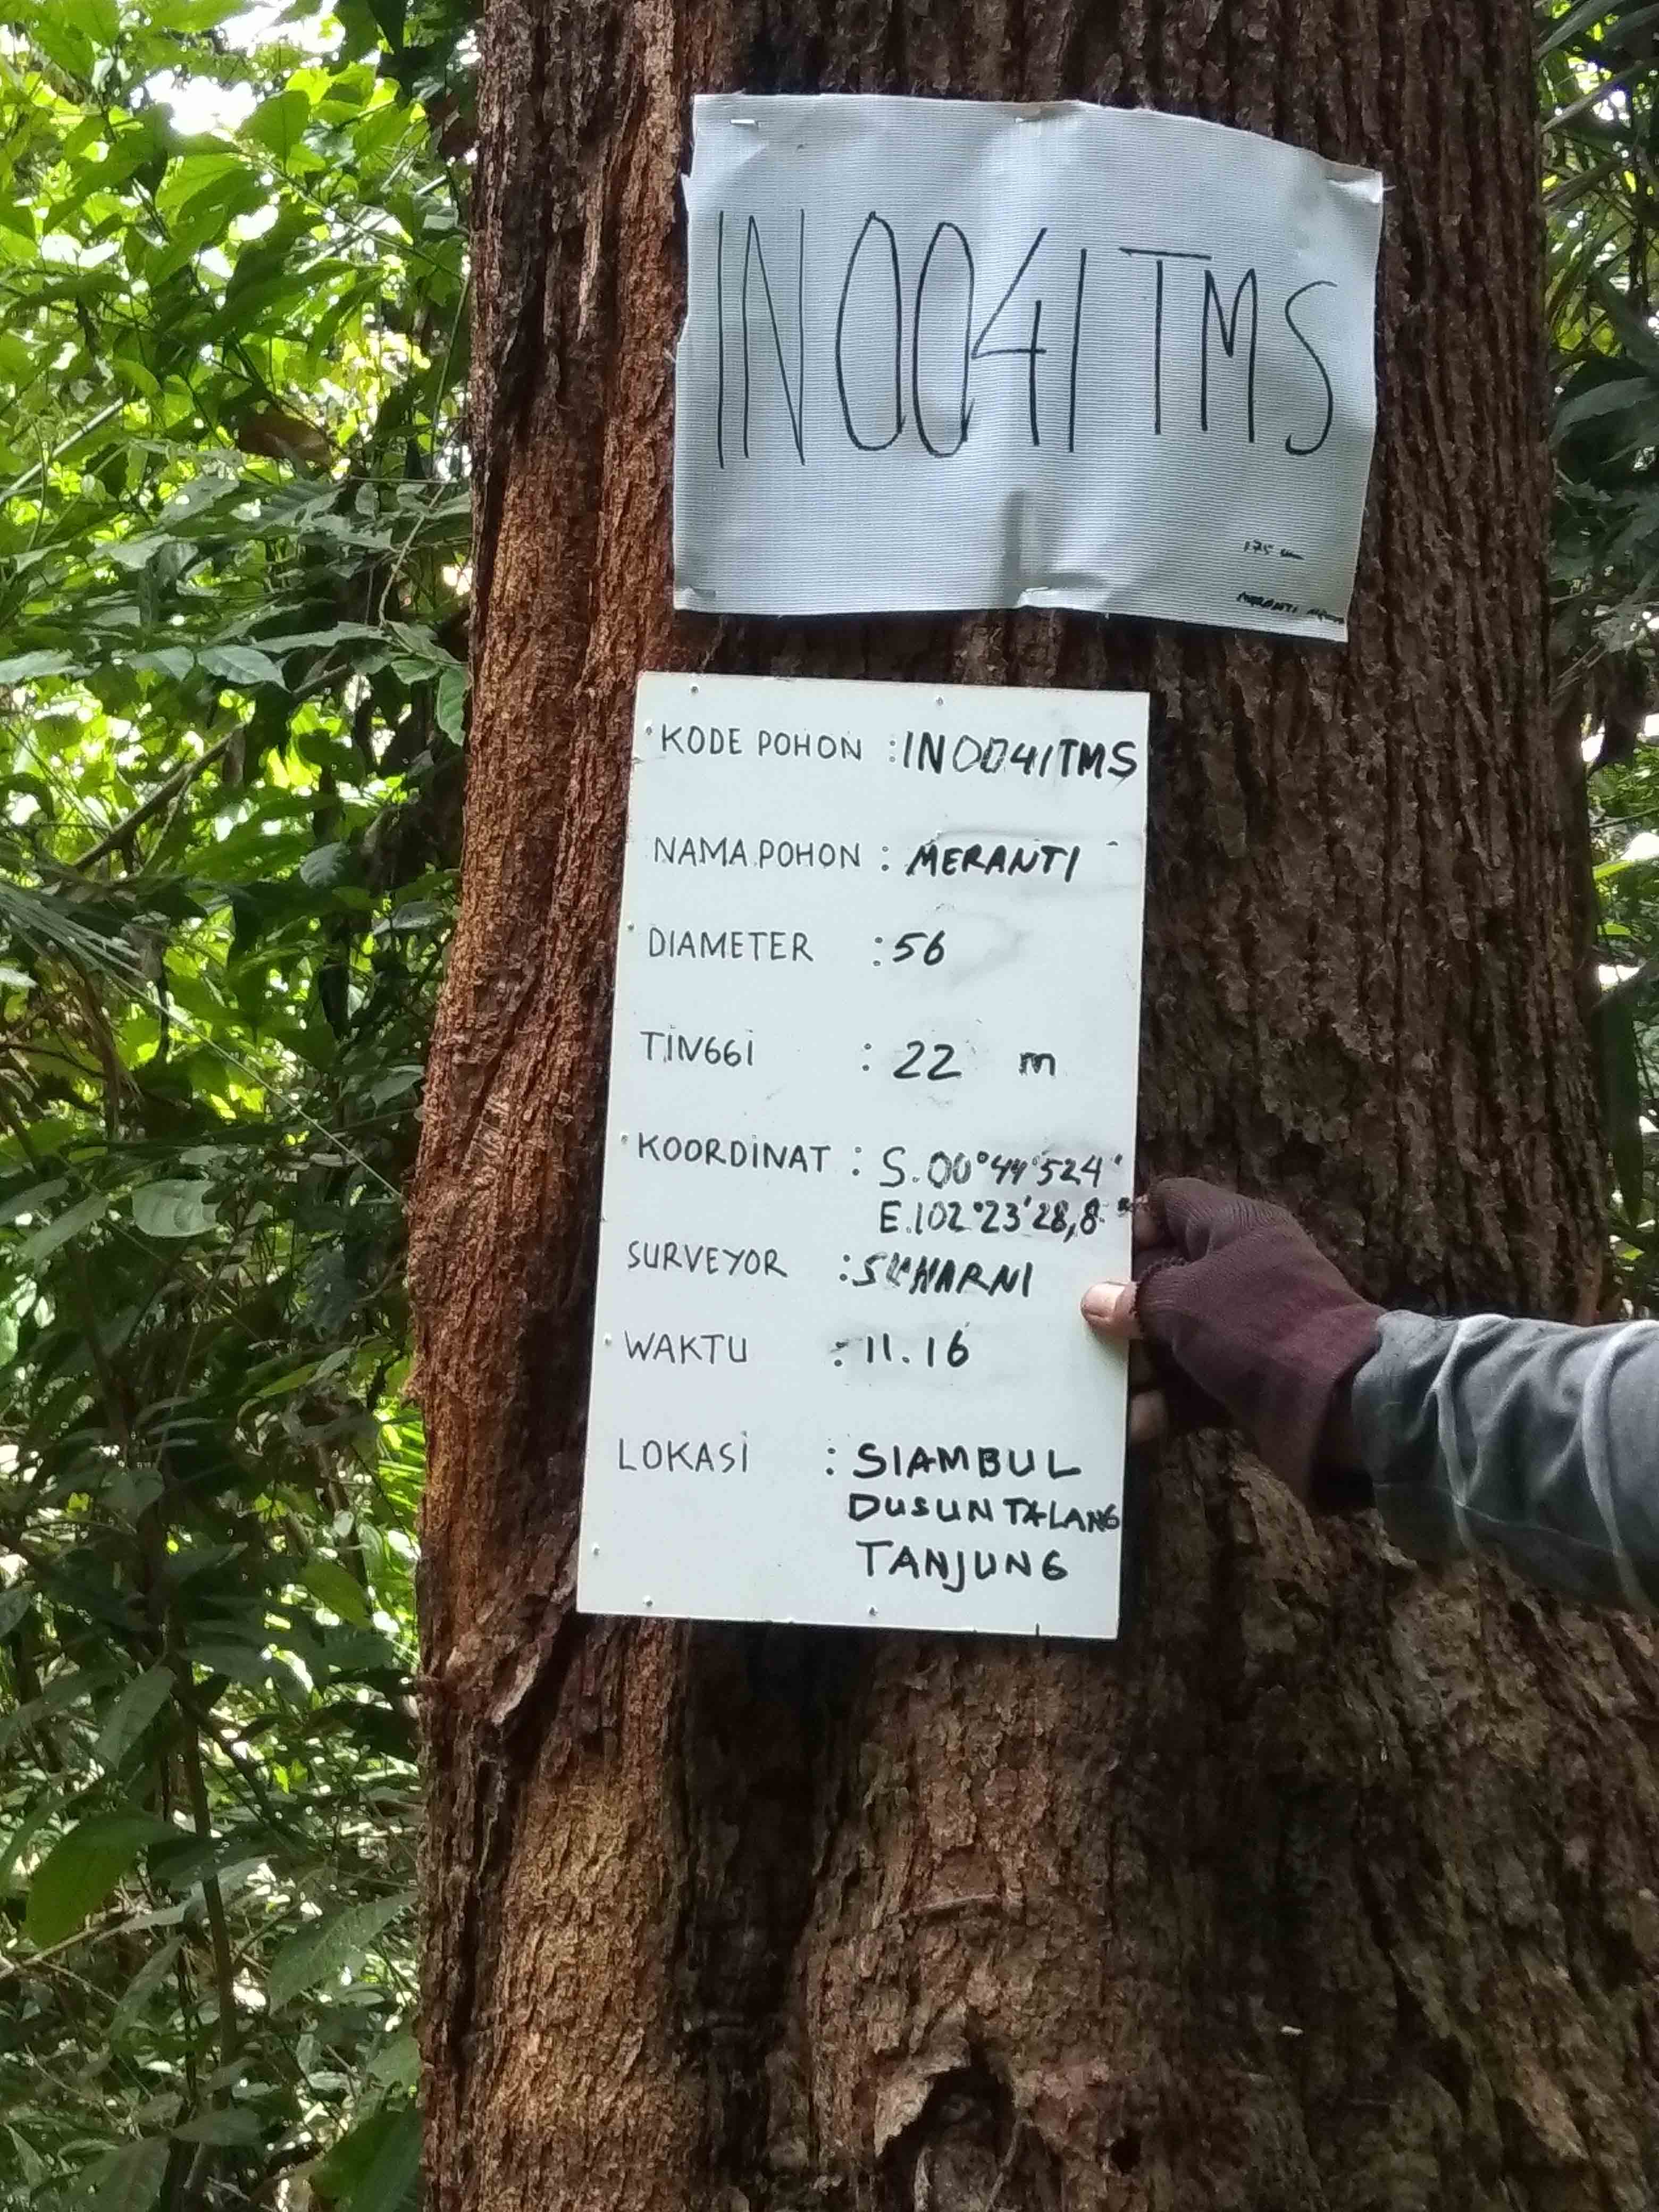 IN0041TMS
175 cm
MERANTI
KODE POHON : IN0041TMS
NAMA POHON : MERANTI
DIAMETER : 56
TINGGI : 22 m
KOORDINAT : S.00°44'524"
E.102°23'28,8"
SURVEYOR : SUHARNI
WAKTU : 11.16
LOKASI : SIAMBUL
DUSUN TALANG
TANJUNG